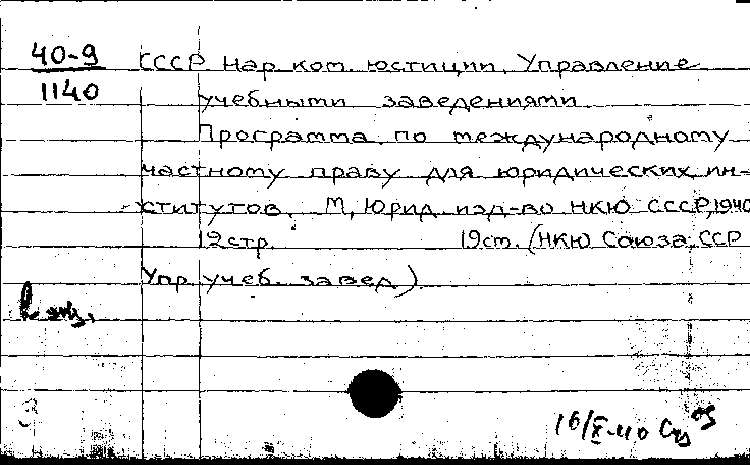 40-9
1140
СССР. Нар. ком. юстиции. Управление
учебными заведениями.
Программа по международному
частному праву для юридических ин-
ститутов. М, Юрид. изд-во НКЮ СССР, 1940
12 стр. 19 см. (НКЮ Союза ССР
Упр. учеб. завед.)
экз.
16/X-40